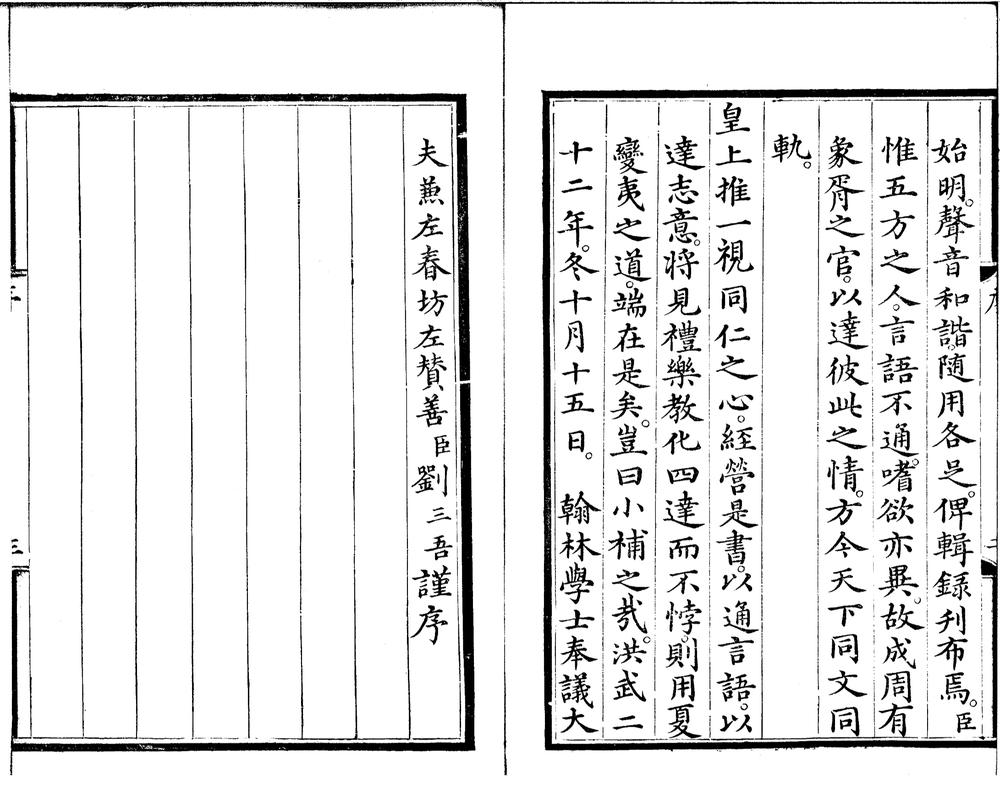 始明。聲音和諧。随用各足。俾輯録刋布焉。臣
惟五方之人。言語不通。嗜欲亦異。故成周有
象胥之官。以達彼此之情。方今天下同文同
軌。
皇上推一視同仁之心。經營是書。以通言語。以
達志意。將見禮樂教化四達而不悖。則用夏
變夷之道。端在是矣。豈曰小補之㢤。洪武二
十二年。冬十月十五日。 翰林學士奉議大
夫兼左春坊左賛善臣劉三吾謹序